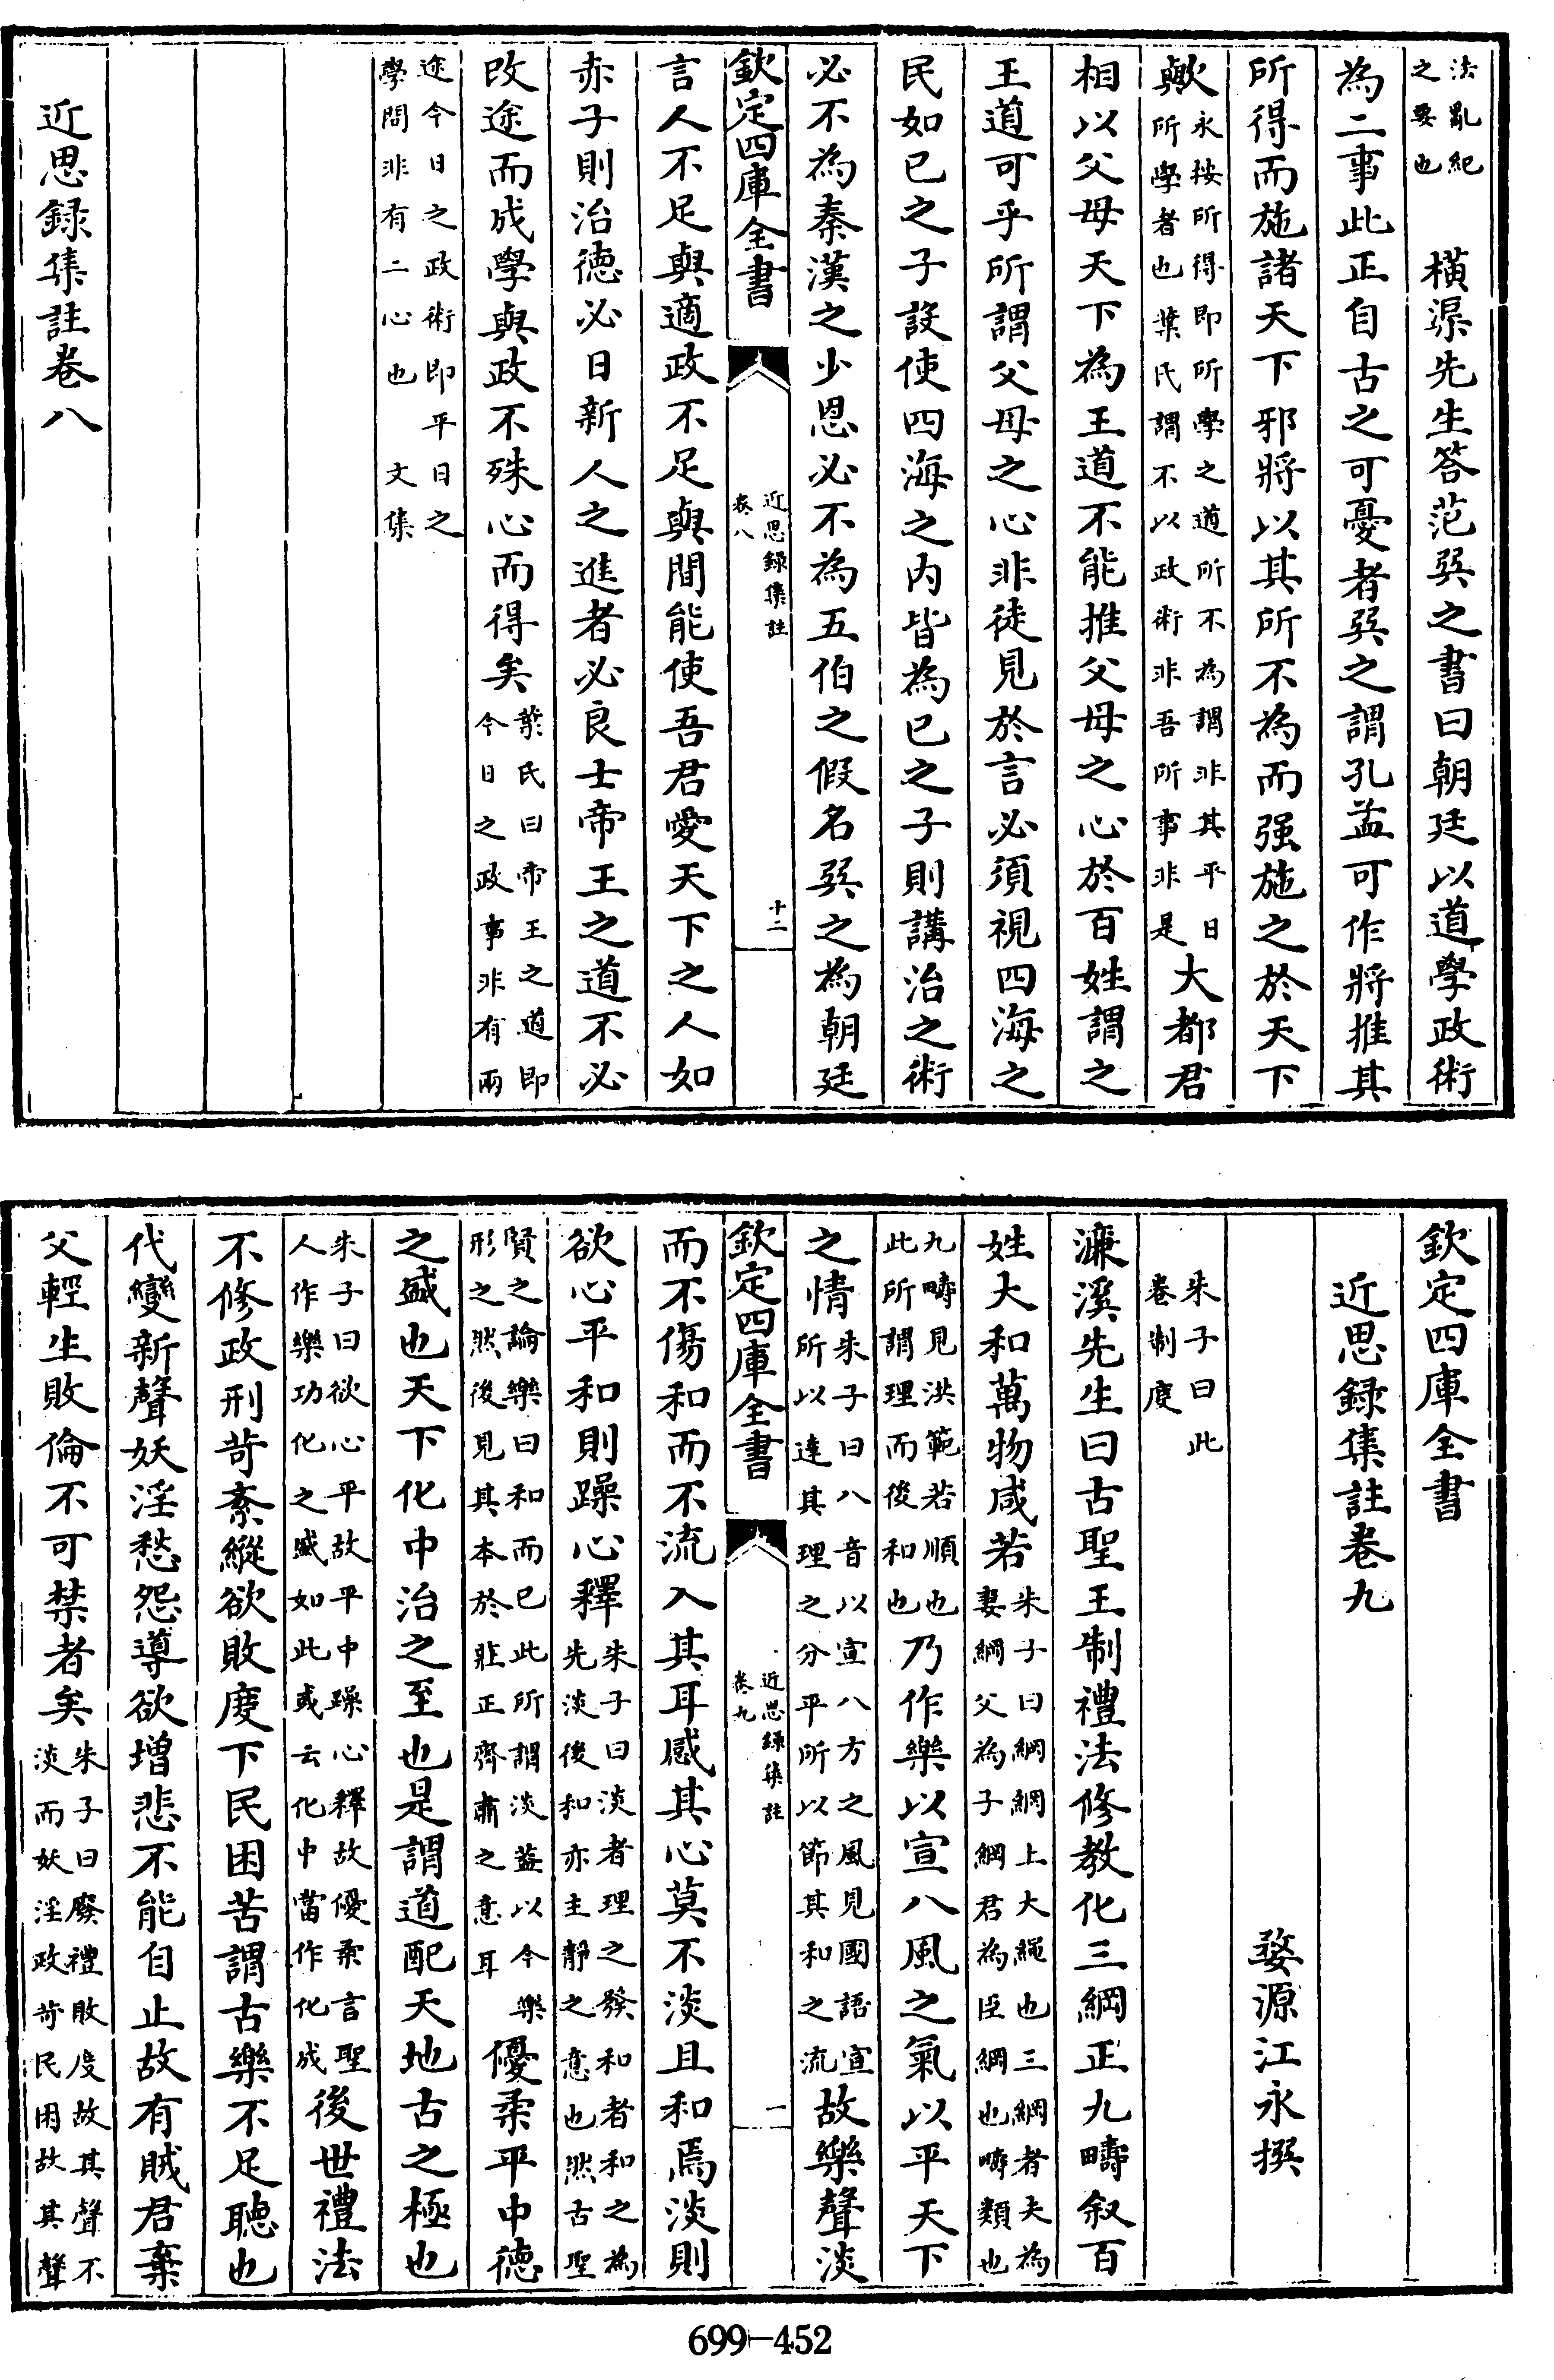 法亂紀之要也　橫渠先生答范巽之書曰朝廷以道學政術
為二事此正自古之可憂者巽之謂孔孟可作將推其
所得而施諸天下邪將以其所不為而强施之於天下
歟永按所得即所學之道所不為謂非其平日所學者也葉氏謂不以政術非吾所事非是大都君
相以父母天下為王道不能推父母之心於百姓謂之
王道可乎所謂父母之心非徒見於言必須視四海之
民如已之子設使四海之内皆為已之子則講治之術
必不為秦漢之少恩必不為五伯之假名巽之為朝廷
欽定四庫全書　近思録集註卷八　十二
言人不足與適政不足與間能使吾君愛天下之人如
赤子則治德必日新人之進者必良士帝王之道不必
改途而成學與政不殊心而得矣葉氏曰帝王之道即今日之政事非有兩
途今日之政術即平日之學問非有二心也　文集
近思録集註卷八
欽定四庫全書
近思録集註卷九
婺源江永撰
朱子曰此卷制度
濂溪先生曰古聖王制禮法修教化三綱正九疇叙百
姓大和萬物咸若朱子曰綱網上大繩也三綱者夫為妻綱父為子綱君為臣綱也疇類也
九疇見洪範若順也此所謂理而後和也乃作樂以宣八風之氣以平天下
之情朱子曰八音以宣八方之風見國語宣所以達其理之分平所以節其和之流故樂聲淡
欽定四庫全書　近思録集註卷九　一
而不傷和而不流入其耳感其心莫不淡且和焉淡則
欲心平和則躁心釋朱子曰淡者理之發和者和之為先淡後和亦主靜之意也然古聖
賢之論樂曰和而已此所謂淡蓋以今樂形之然後見其本於莊正齊肅之意耳優柔平中德
之盛也天下化中治之至也是謂道配天地古之極也
朱子曰欲心平故平中躁心釋故優柔言聖人作樂功化之盛如此或云化中當作化成後世禮法
不修政刑苛紊縱欲敗度下民困苦謂古樂不足聽也
代變新聲妖淫愁怨導欲增悲不能自止故有賊君棄
父輕生敗倫不可禁者矣朱子曰廢禮敗度故其聲不淡而妖淫政苛民困故其聲
699-452